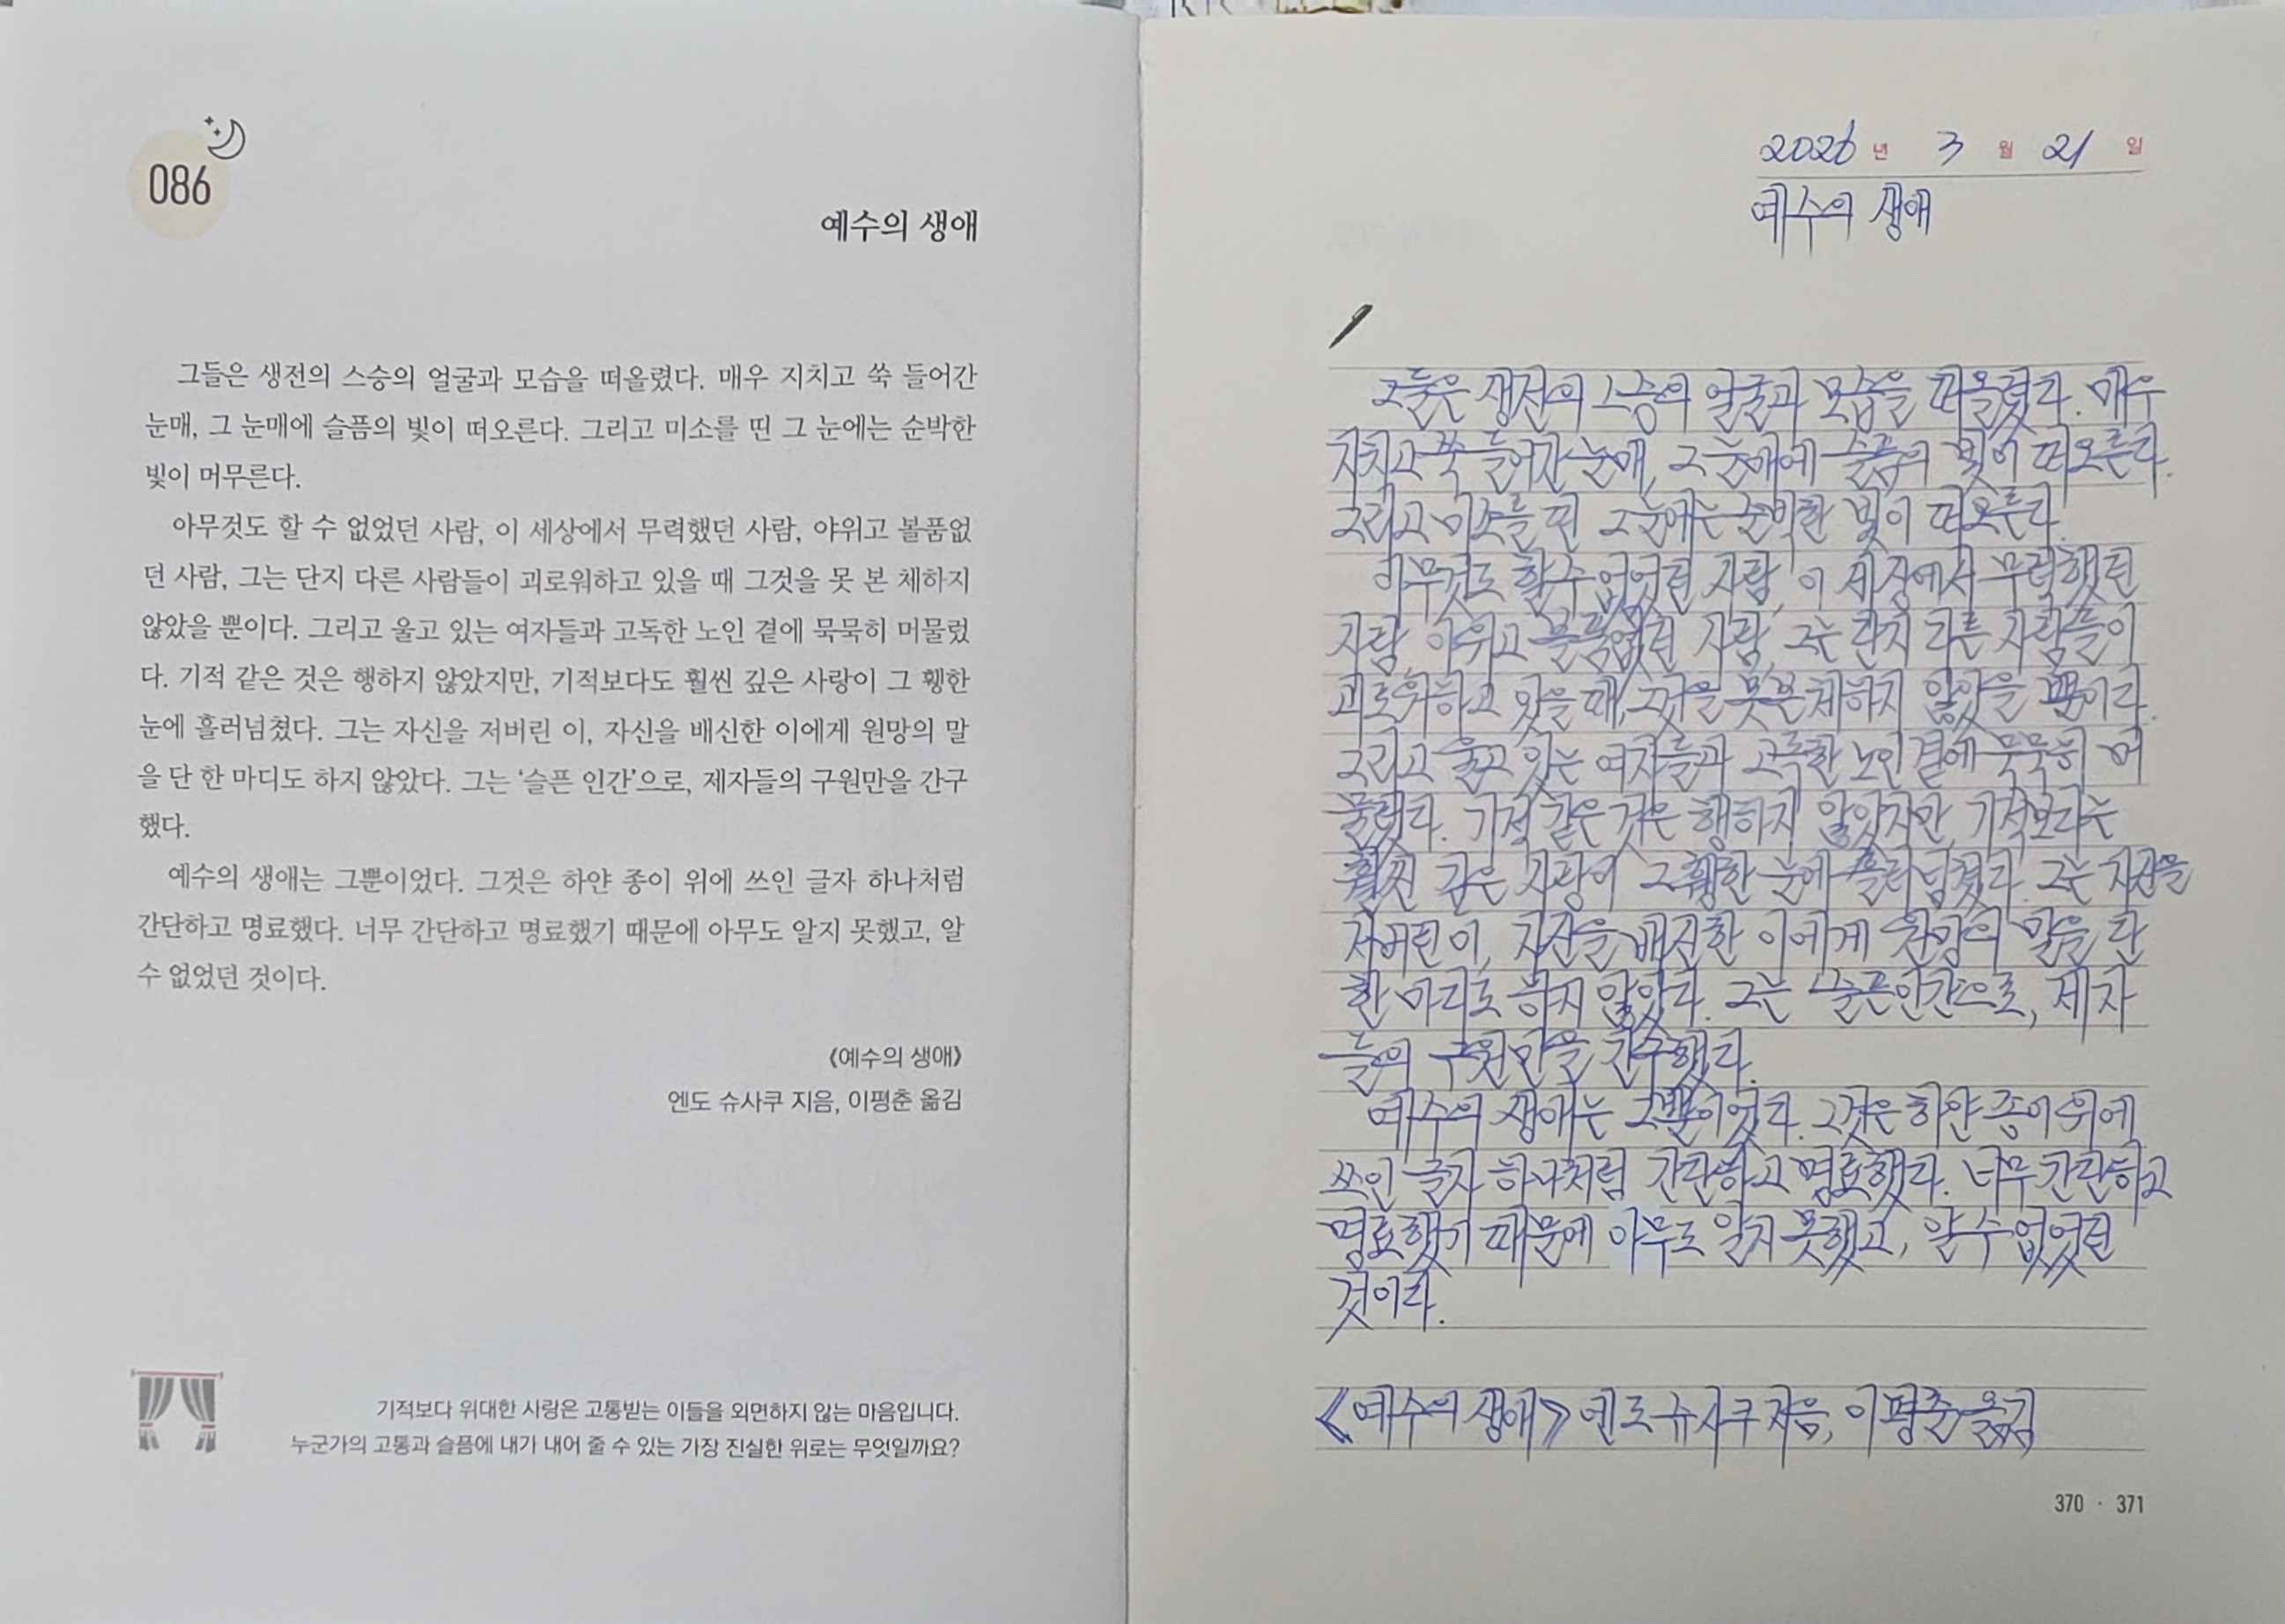 086
예수의 생애
그들은 생전의 스승의 얼굴과 모습을 떠올렸다. 매우 지치고 쑥 들어간
눈매, 그 눈매에 슬픔의 빛이 떠오른다. 그리고 미소를 띤 그 눈에는 순박한
빛이 머무른다.
아무것도 할 수 없었던 사람, 이 세상에서 무력했던 사람, 야위고 볼품없
던 사람, 그는 단지 다른 사람들이 괴로워하고 있을 때 그것을 못 본 체하지
않았을 뿐이다. 그리고 울고 있는 여자들과 고독한 노인 곁에 묵묵히 머물렀
다. 기적 같은 것은 행하지 않았지만, 기적보다도 훨씬 깊은 사랑이 그 휑한
눈에 흘러넘쳤다. 그는 자신을 저버린 이, 자신을 배신한 이에게 원망의 말
을 단 한 마디도 하지 않았다. 그는 ‘슬픈 인간’으로, 제자들의 구원만을 간구
했다.
예수의 생애는 그뿐이었다. 그것은 하얀 종이 위에 쓰인 글자 하나처럼
간단하고 명료했다. 너무 간단하고 명료했기 때문에 아무도 알지 못했고, 알
수 없었던 것이다.
《예수의 생애》
엔도 슈사쿠 지음, 이평춘 옮김
기적보다 위대한 사랑은 고통받는 이들을 외면하지 않는 마음입니다.
누군가의 고통과 슬픔에 내가 내어 줄 수 있는 가장 진실한 위로는 무엇일까요?
2026년 3월 21일
예수의 생애
그들은 생전의 스승의 얼굴과 모습을 떠올렸다. 매우
지치고 쑥 들어간 눈매, 그 눈매에 슬픔의 빛이 떠오른다.
그리고 미소를 띤 그 눈에는 순박한 빛이 떠오른다.
아무것도 할 수 없었던 사람, 이 세상에서 무력했던
사람, 야위고 볼품없던 사람, 그는 단지 다른 사람들이
괴로워하고 있을 때, 그것을 못 본 체하지 않았을 뿐이다.
그리고 울고 있는 여자들과 고독한 노인 곁에 묵묵히 머
물렀다. 기적 같은 것은 행하지 않았지만, 기적보다는
훨씬 깊은 사랑이 그 휑한 눈에 흘러넘쳤다. 그는 자신을
저버린 이, 자신을 배신한 이에게 원망의 말을 단
한 마디도 하지 않았다. 그는 '슬픈 인간으로, 제자
들의 구원만을 했다.
예수의 생애는 그뿐이었다. 그것은 하얀 종이 위에
쓰인 글자 하나처럼 간단하고 명료했다. 너무 간단하고
명료했기 때문에 아무도 알지 못했고, 알 수 없었던
것이다.
《예수의 생애》 엔도 슈사쿠 지음, 이평춘 옮김
370 · 371